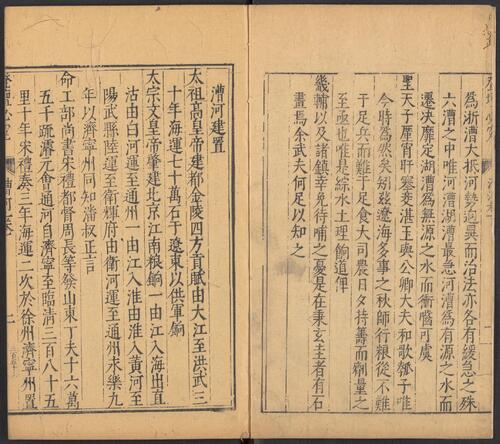 為浙漕大抵河勢迥異而治法亦各有緩急之殊
六漕之中唯河漕湖漕最急河漕為有源之水而
遷决靡定湖漕為無源之水而衝囓可虞
聖天子厪宵旰塞菱湛玉與公卿大夫和歌瓠子唯
今時為然矣矧茲遼海多事之秋師行粮從不難
于足兵而難于足食大司農日夕持籌而劑量之
至亟也唯是綜水土理餉道俾
畿輔以及諸鎮幸免待哺之憂是在秉玄圭者有石
畫焉余武夫何足以知之
漕河建置
太祖高皇帝建都金陵四方貢賦由大江至洪武三
十年海運七十萬石于遼東以供軍餉
太宗文皇帝肇建北京江南粮餉一由江入海出直
沽由白河運至通州一由江入淮由淮入黃河至
陽武縣陸運至衛輝府由衛河運至通州永樂九
年以濟寧州同知潘叔正言
命工部尚書宋禮都督周長等發山東丁夫十六萬
五千疏濬元會通河自濟寧至臨清三百八十五
里十年宋禮奏三年海運二次於徐州濟寧州置
漕河
一